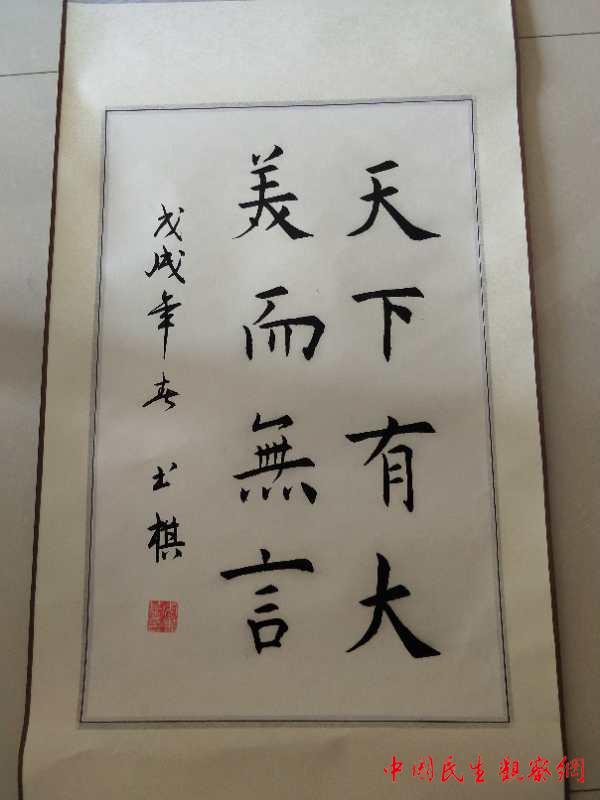 天下有大
美而無言
戊戌年春 士棋
中國民生觀察網